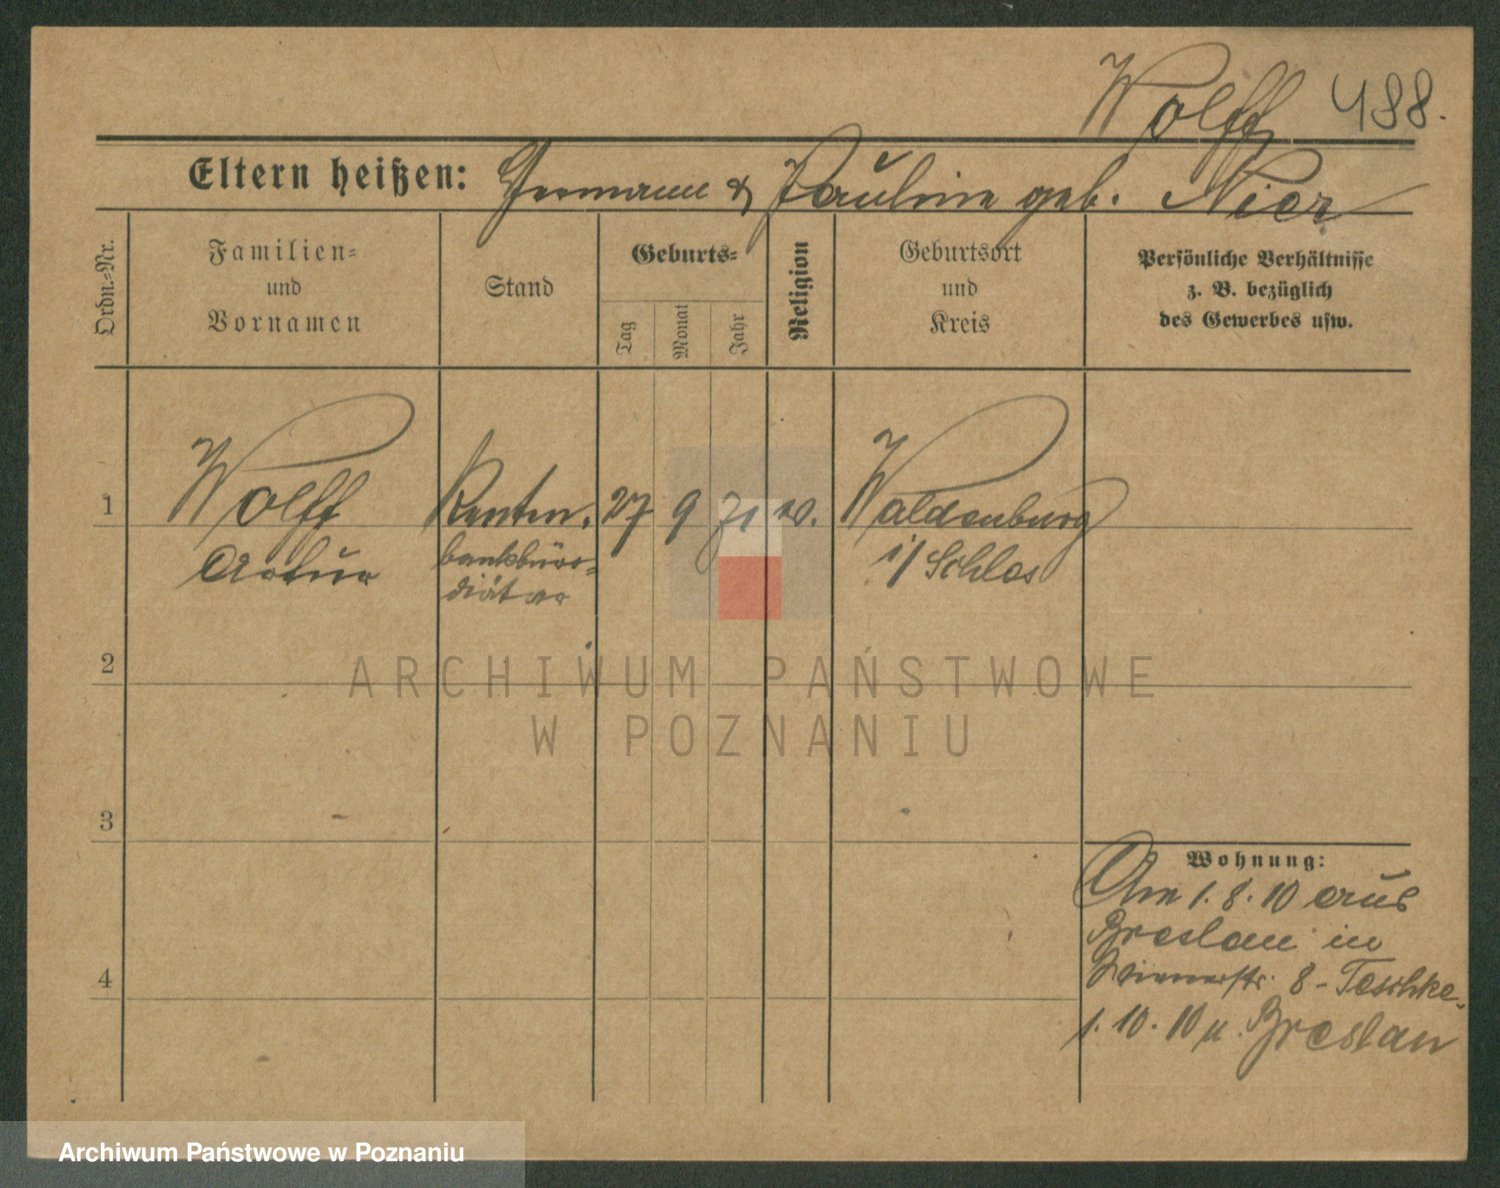 Wolff 488.
Eltern heißen: Hermann & Pauline geb. Nier
Ordn.-Nr.
Familien-
und
Vornamen
Stand
Geburts-
Tag
Monat
Jahr
Religion
Geburtsort
und
Kreis
Persönliche Verhältnisse
z. B. bezüglich
des Gewerbes usw.
1
Wolff
Artur
Renten.
bankbüro-
diätar
27 9 71
Waldenburg
i/ Schles
2
ARCHIWUM PAŃSTWOWE
W POZNANIU
3
Wohnung:
Am 1.8.10 aus
Breslau in
8 - Teschke.
4
1.10.10 n. Breslau
Archiwum Państwowe w Poznaniu